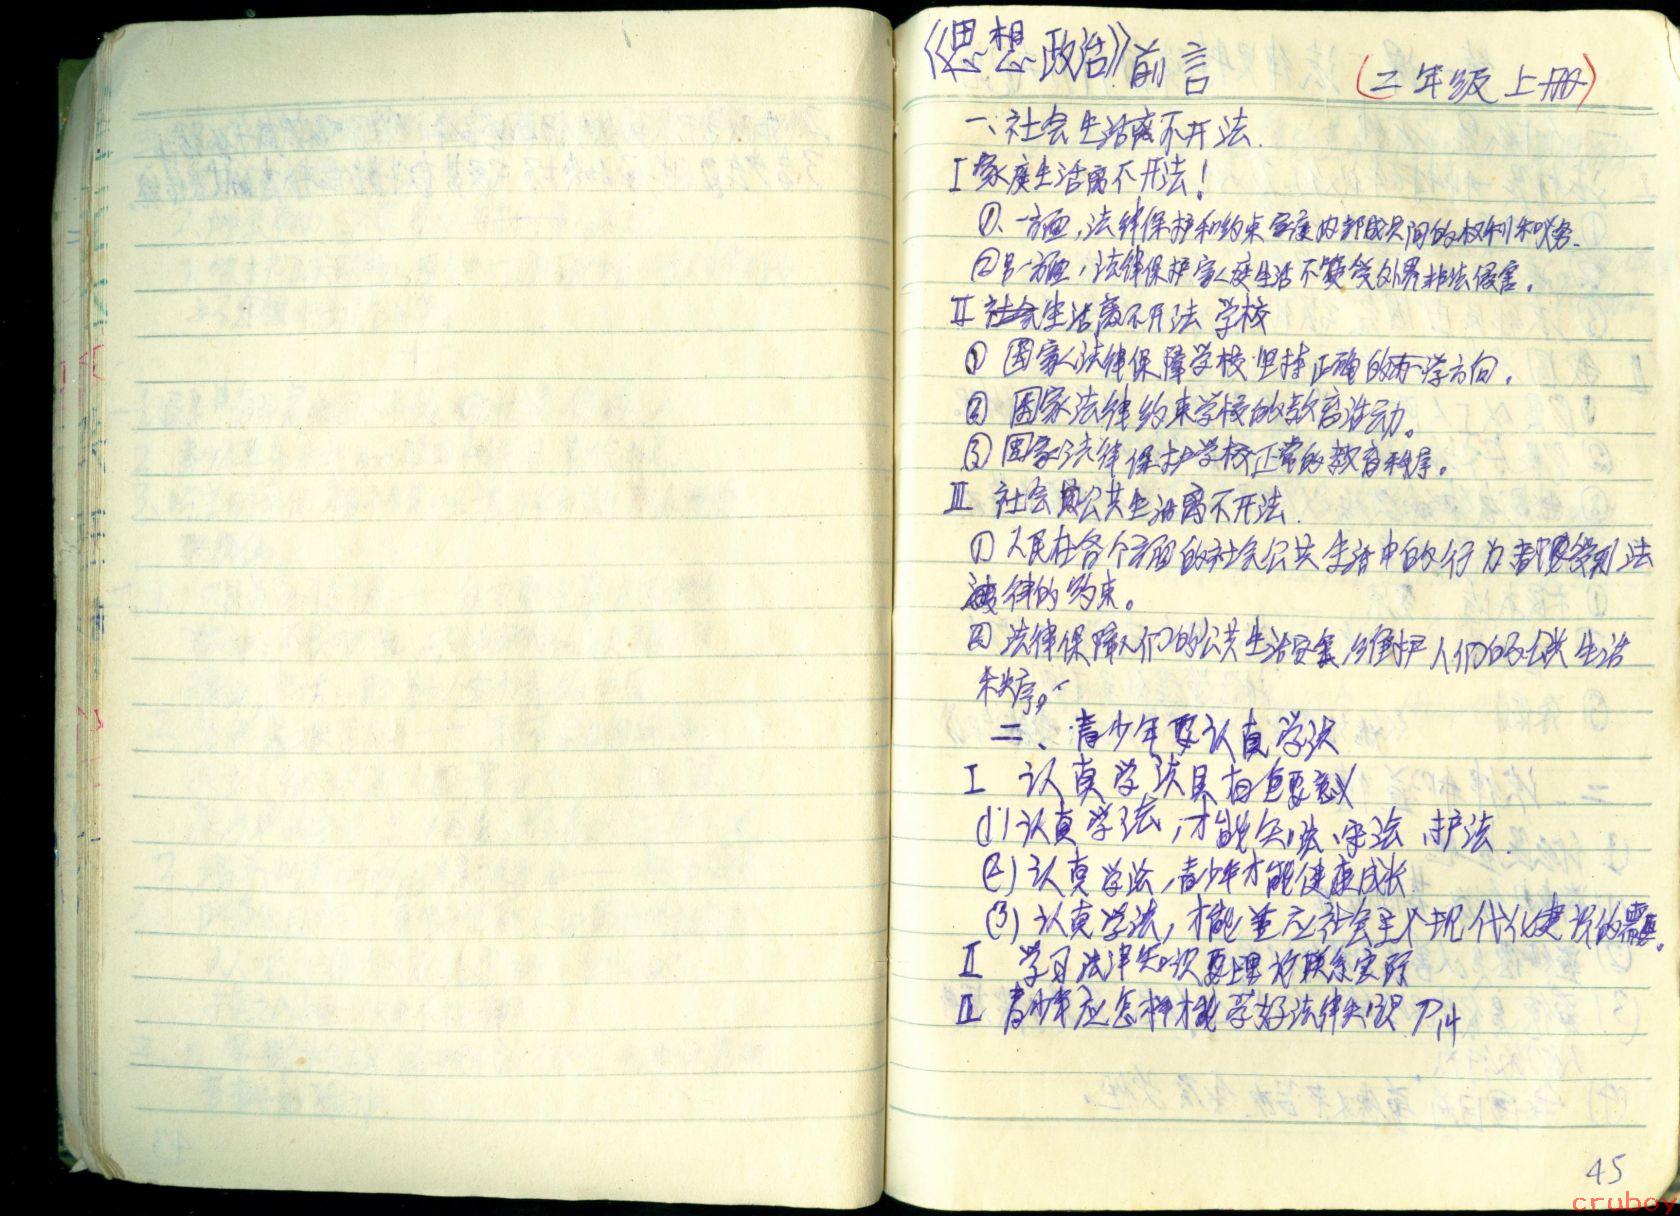 《思想政治》前言
(二年级上册)
一、社会生活离不开法.
I 家庭生活离不开法!
①、一方面,法律保护和约束家庭内部成员间的权利和义务.
②另一方面,法律保护家庭生活不受外界非法侵害。
II 生活离不开法 学校
① 国家法律保障学校坚持正确的办学方向.
② 国家法律约束学校的教育活动。
③ 国家法律保护学校正常的教育秩序。
III 社会公共生活离不开法.
① 人民在各个方面的社会公共生活中的行为都要受到法
律的约束。
法律保障人们的公共生活安全,维护人们的公共生活
秩序。
二、青少年要认真学法
I 认真学法具有重要意义
(1) 认真学法,才能知法、守法、护法.
(2) 认真学法,青少年才能健康成长
(3) 认真学法,才能适应社会主义现代化建设的需要。
II 学习法律知识要理论联系实际
III 青少年应怎样才能学好法律知识 P14
45
cruboy